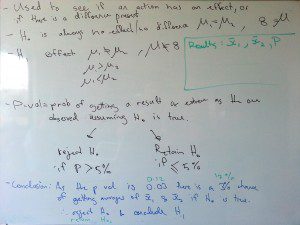 - Used to see if an action has an effect, or
if there is a difference present
- H₀ is always no effect/no difference μ₁ = μ₂ , 8 = μ
H₁ effect μ₁ ≠ μ₂ , μ ≠ 8
μ₁ > μ₂
μ₁ < μ₂
Results: x̄₁, x̄₂, P
- P-val = prob of getting a result as extreme as the one
observed assuming H₀ is true.
reject H₀ Retain H₀
if P > 5% if P ≤ 5%
0.12 12%
- Conclusion: As the p val is 0.03 there is a 3% chance
of getting averages of x̄₁ x̄₂ if H₀ is true.
∴ reject H₀ & conclude H₁
retain H₀